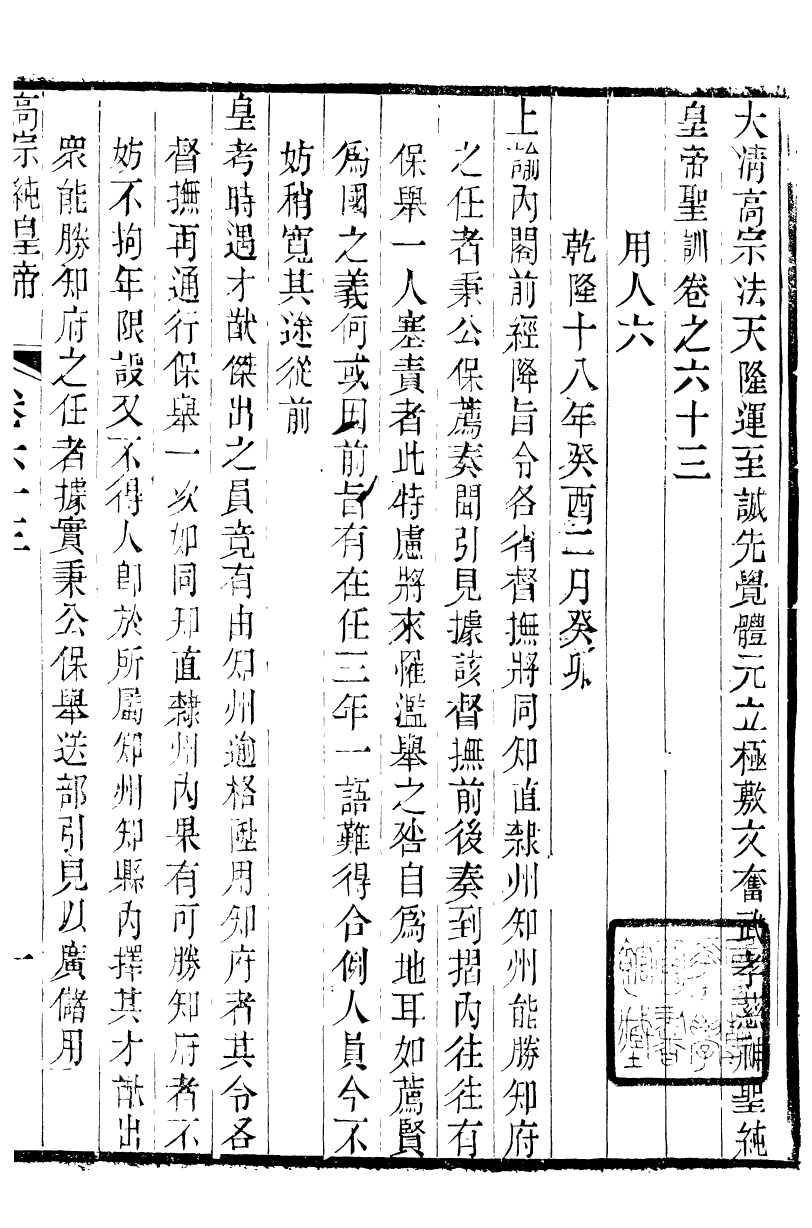 大清高宗法天隆運至誠先覺體元立極敷文奮武孝慈神聖純
皇帝聖訓卷之六十三
用人六
乾隆十八年癸酉二月癸卯
上諭內閣前經降旨令各省督撫將同知直隸州知州能勝知府
之任者秉公保薦奏聞引見據該督撫前後奏到摺內往往有
保舉一人塞責者此特慮將來罹濫舉之咎自爲地耳如薦賢
爲國之義何或因前旨有在任三年一語難得合例人員今不
妨稍寬其途從前
皇考時遇才猷傑出之員竟有由知州逾格陞用知府者其令各
督撫再通行保舉一次如同知直隸州內果有可勝知府者不
妨不拘年限設又不得人卽於所屬知州知縣內擇其才猷出
衆能勝知府之任者據實秉公保舉送部引見以廣儲用
高宗純皇帝
卷六十三
一